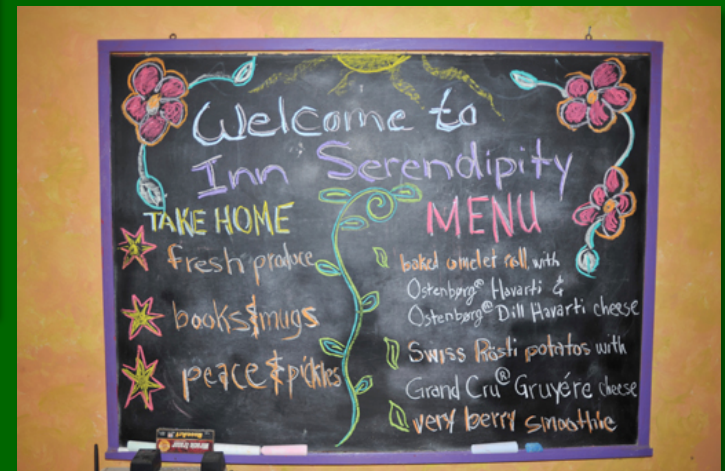 Welcome to
Inn Serendipity
TAKE HOME
fresh produce
books & mugs
peace & pickles
MENU
baked omelet roll with
Ostenborg® Havarti &
Ostenborg® Dill Havarti cheese
Swiss Rösti potatos with
Grand Cru® Gruyére cheese
very berry smoothie